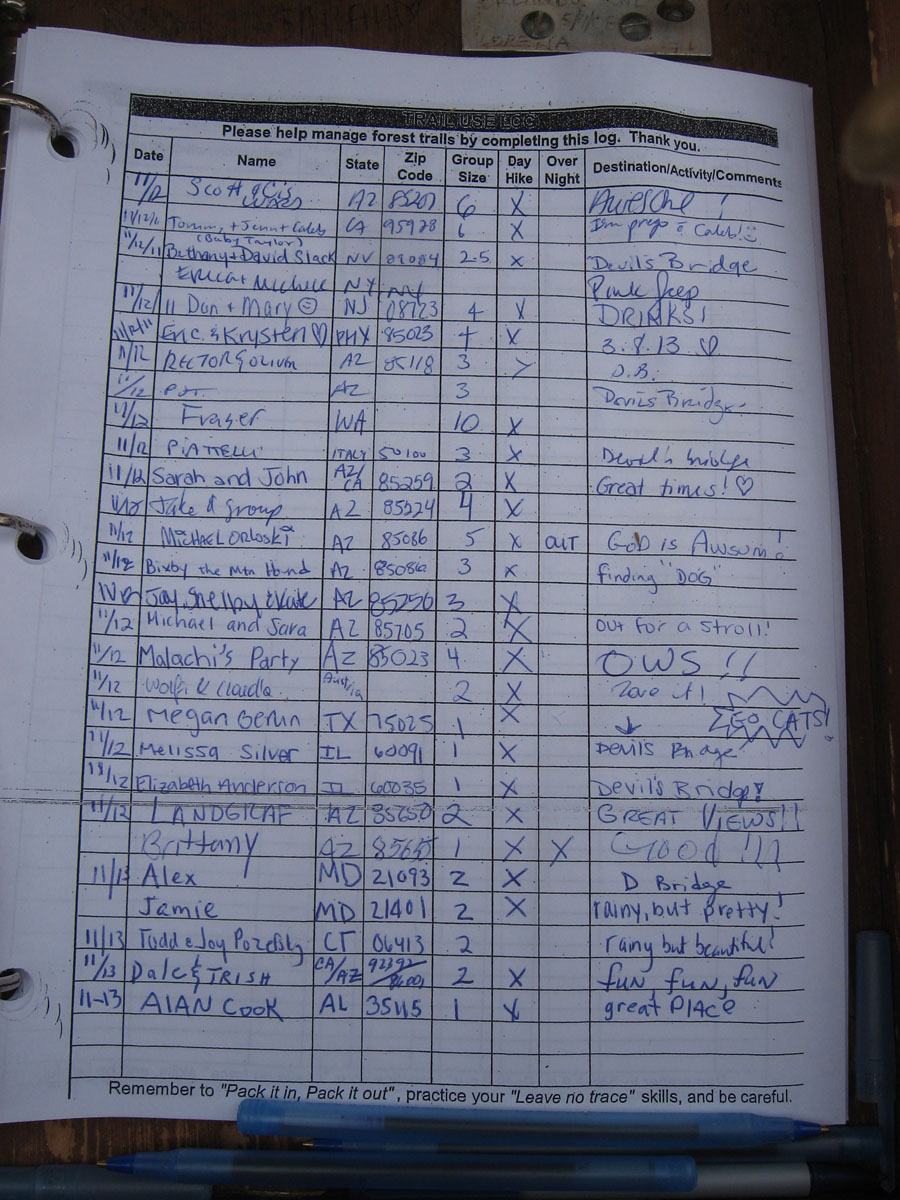 LORENA
TRAIL USE LOG
Please help manage forest trails by completing this log. Thank you.
Date Name State Zip Code Group Size Day Hike Over Night Destination/Activity/Comments
11/12 Scott AZ 85207 6 X Awesome !
11/12/11 Tommy + Jenn + Caleb CA 95928 6 X I'm prego c̄ Caleb!
(Baby Taylor)
11/12/11 Bethany + David Slack NV 89084 2.5 X Devil's Bridge
Erica + Michele NY NY Pink Jeep
11/12/11 Dan + Mary ☺ NJ 08723 4 X DRINKS!
11/12/11 Eric & Krysten ♡ PHX 85023 X 3.8.13 ♡
11/12 AZ 85118 3 D.B.
11/12 AZ 3 Devils Bridge
11/12 Fraser WA 10 X
11/12 PIATTELLI ITALY 50100 3 X Devil's bridge
11/12 Sarah and John AZ/CA 85259 2 X Great times! ♡
11/12 Jake & group AZ 85224 4 X
11/12 MICHAEL ORLOSKI AZ 85086 5 X OUT GOD is AWSUM!
11/12 Bixby the Mtn Hound AZ 85086 3 X finding "DOG"
11/12 Jay, Shelby & Kate AZ 85256 3 X
11/12 Michael and Sara AZ 85705 2 X out for a stroll!
11/12 Malachi's Party AZ 85023 4 X OWS !!
11/12 Wolfi & Claudia Austria 2 X Love it!
11/12 Megan TX 75025 1 X ↓ GO CATS!
11/12 Melissa Silver IL 60091 1 X Devils Bridge
11/12 Elizabeth Anderson IL 60035 1 X Devil's Bridge!
11/12 LANDGRAF AZ 2 X GREAT VIEWS!!
Brittany AZ 1 X X Good !!!
11/13 Alex MD 21093 2 X D Bridge
Jamie MD 21401 2 X rainy, but pretty!
11/13 Todd & Joy CT 06413 2 rainy but beautiful!
11/13 Dale & TRISH CA/AZ 92392/ 2 X fun, fun, fun
11-13 AlAN COOK AL 35115 1 X great PlAce
Remember to "Pack it in, Pack it out", practice your "Leave no trace" skills, and be careful.